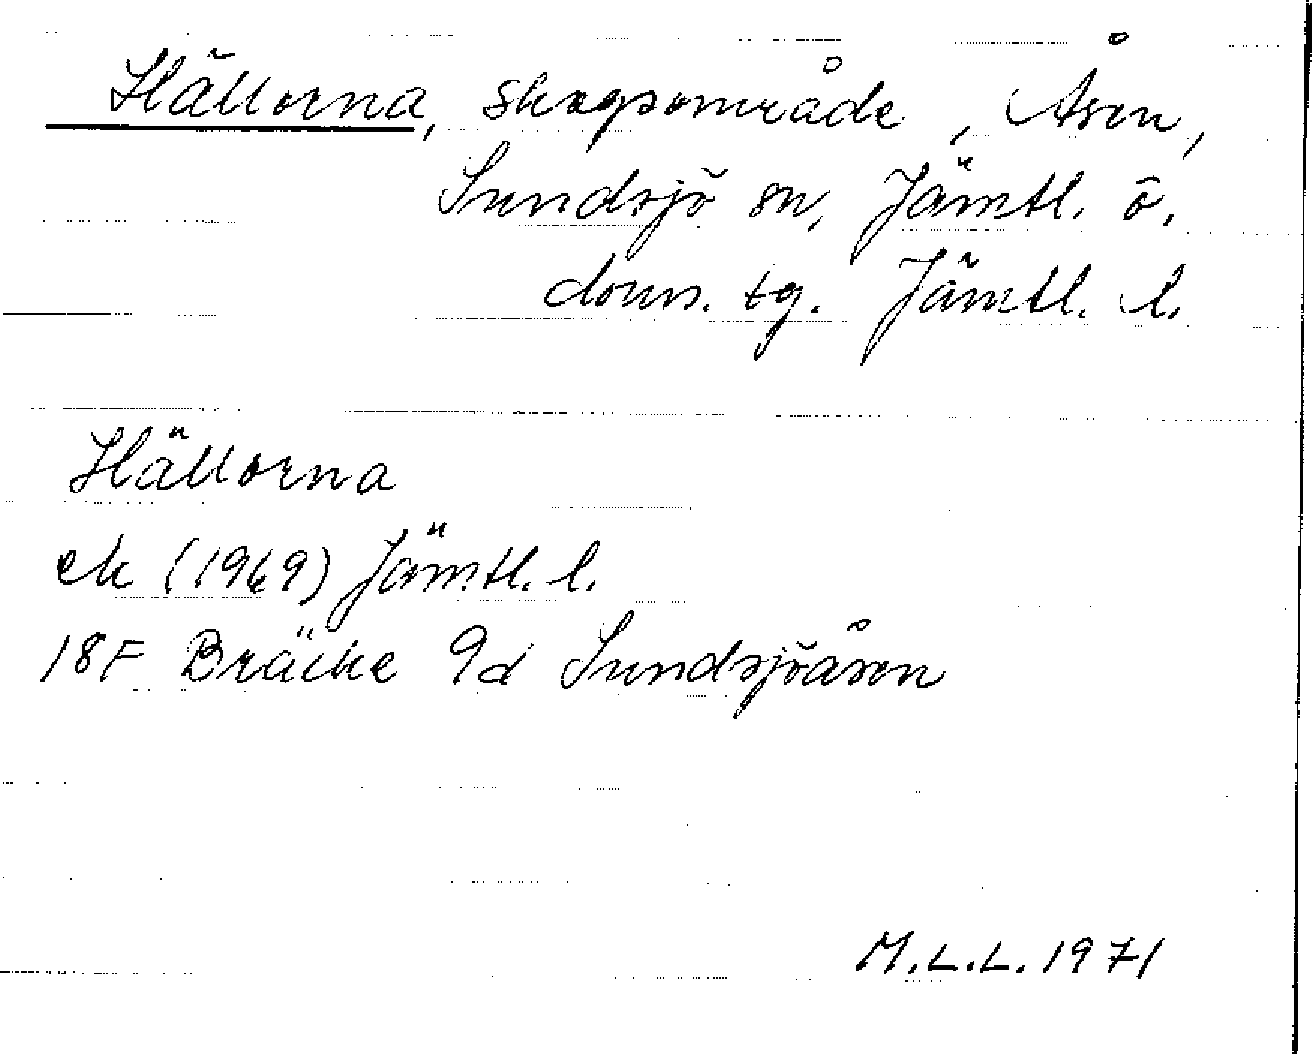 Hällorna, skogsområde, Åsen,
Sundsjö sn, Jämtl. ö.
doms. tg. Jämtl. l.
Hällorna
ek (1969) Jämtl. l.
18F Bräcke 9d Sundsjöåsen
M.L.L. 1971